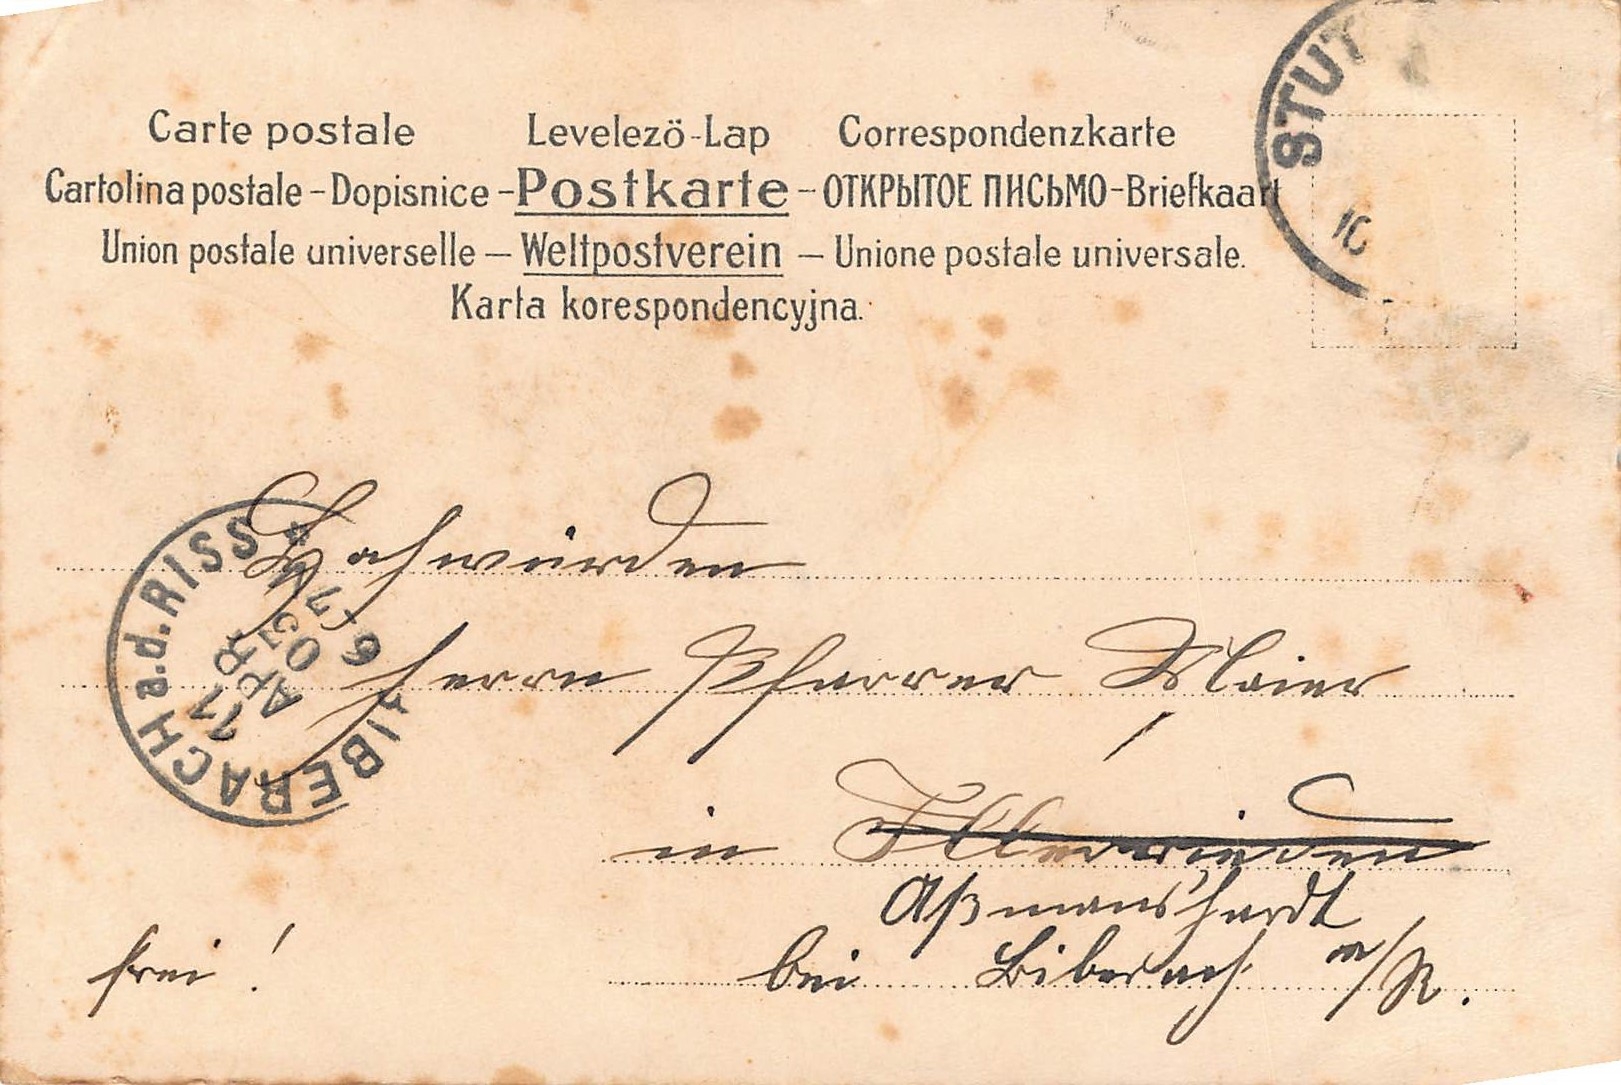 Carte postale Levelező-Lap Correspondenzkarte
Cartolina postale – Dopisnice – Postkarte – ОТКРЫТОЕ ПИСЬМО – Briefkaart
Union postale universelle – Weltpostverein – Unione postale universale.
Karta korespondencyjna.
STUT
10
BIBERACH a.d. RISS
17
APR
03
Hochwürden
Herrn Pfarrer Maier
in Illerrieden
Aßmanshardt
bei Biberach a/R.
frei!